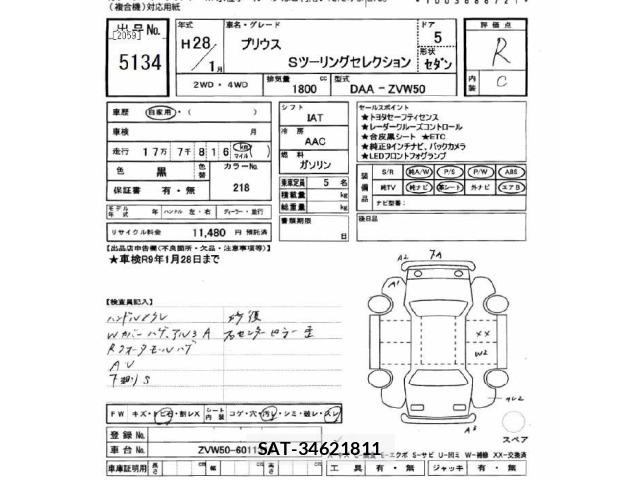 (複合機)対応用紙
出品号No. 年式 車名・グレード ドア 評価点
[2059]
5134 H28/1月 プリウス 5 R
Sツーリングセレクション 形状 セダン
2WD・4WD 排気量 1800 cc 型式 DAA-ZVW50 内装 C
車歴 自家用・( )
車検 月
走行 17万7千816 km マイル
色 黒 色替 カラーNo. 218
保証書 有・無
モデル年式 年 ハンドル 左・右 ディーラー・並行
リサイクル料金 11,480 円 預託済
シフト IAT
冷房 AAC
燃料 ガソリン
乗車定員 5 名
積載量 kg
総重量 kg
書類期限 日
セールスポイント
★トヨタセーフティセンス
★レーダークルーズコントロール
★合皮黒シート ★ETC
★純正9インチナビ,バックカメラ
★LEDフロントフォグランプ
装備品 S/R 純A/W P/S P/W ABS
純TV 純ナビ 革シート 外ナビ エアB
ナビ型番:
後日品
【出品店申告欄(不良箇所・欠品・注意事項等)】
★車検R9年1月28日まで
【検査員記入】
A2 7A
A1
XX
W2
A3
FW キズ・トビ石・割レX シート内装 コゲ・穴・汚レ・シミ・破レ・スレ
登録No.
車台No. ZVW50-6011
SAT-34621811
スペア
A-キズ E-エクボ S-サビ U-凹ミ W-補修 XX-交換済
車庫証明用 長さ cm 幅 cm 高さ cm 工具 有・無 ジャッキ 有・無